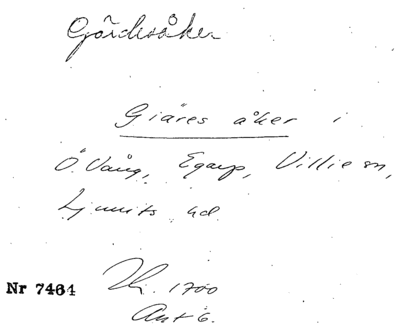 Gördesåker
Giäres åker i
Ö. Vång, Egarp, Villie sn,
Ljunits hd.
Nr 7464
1700
Akt 6.